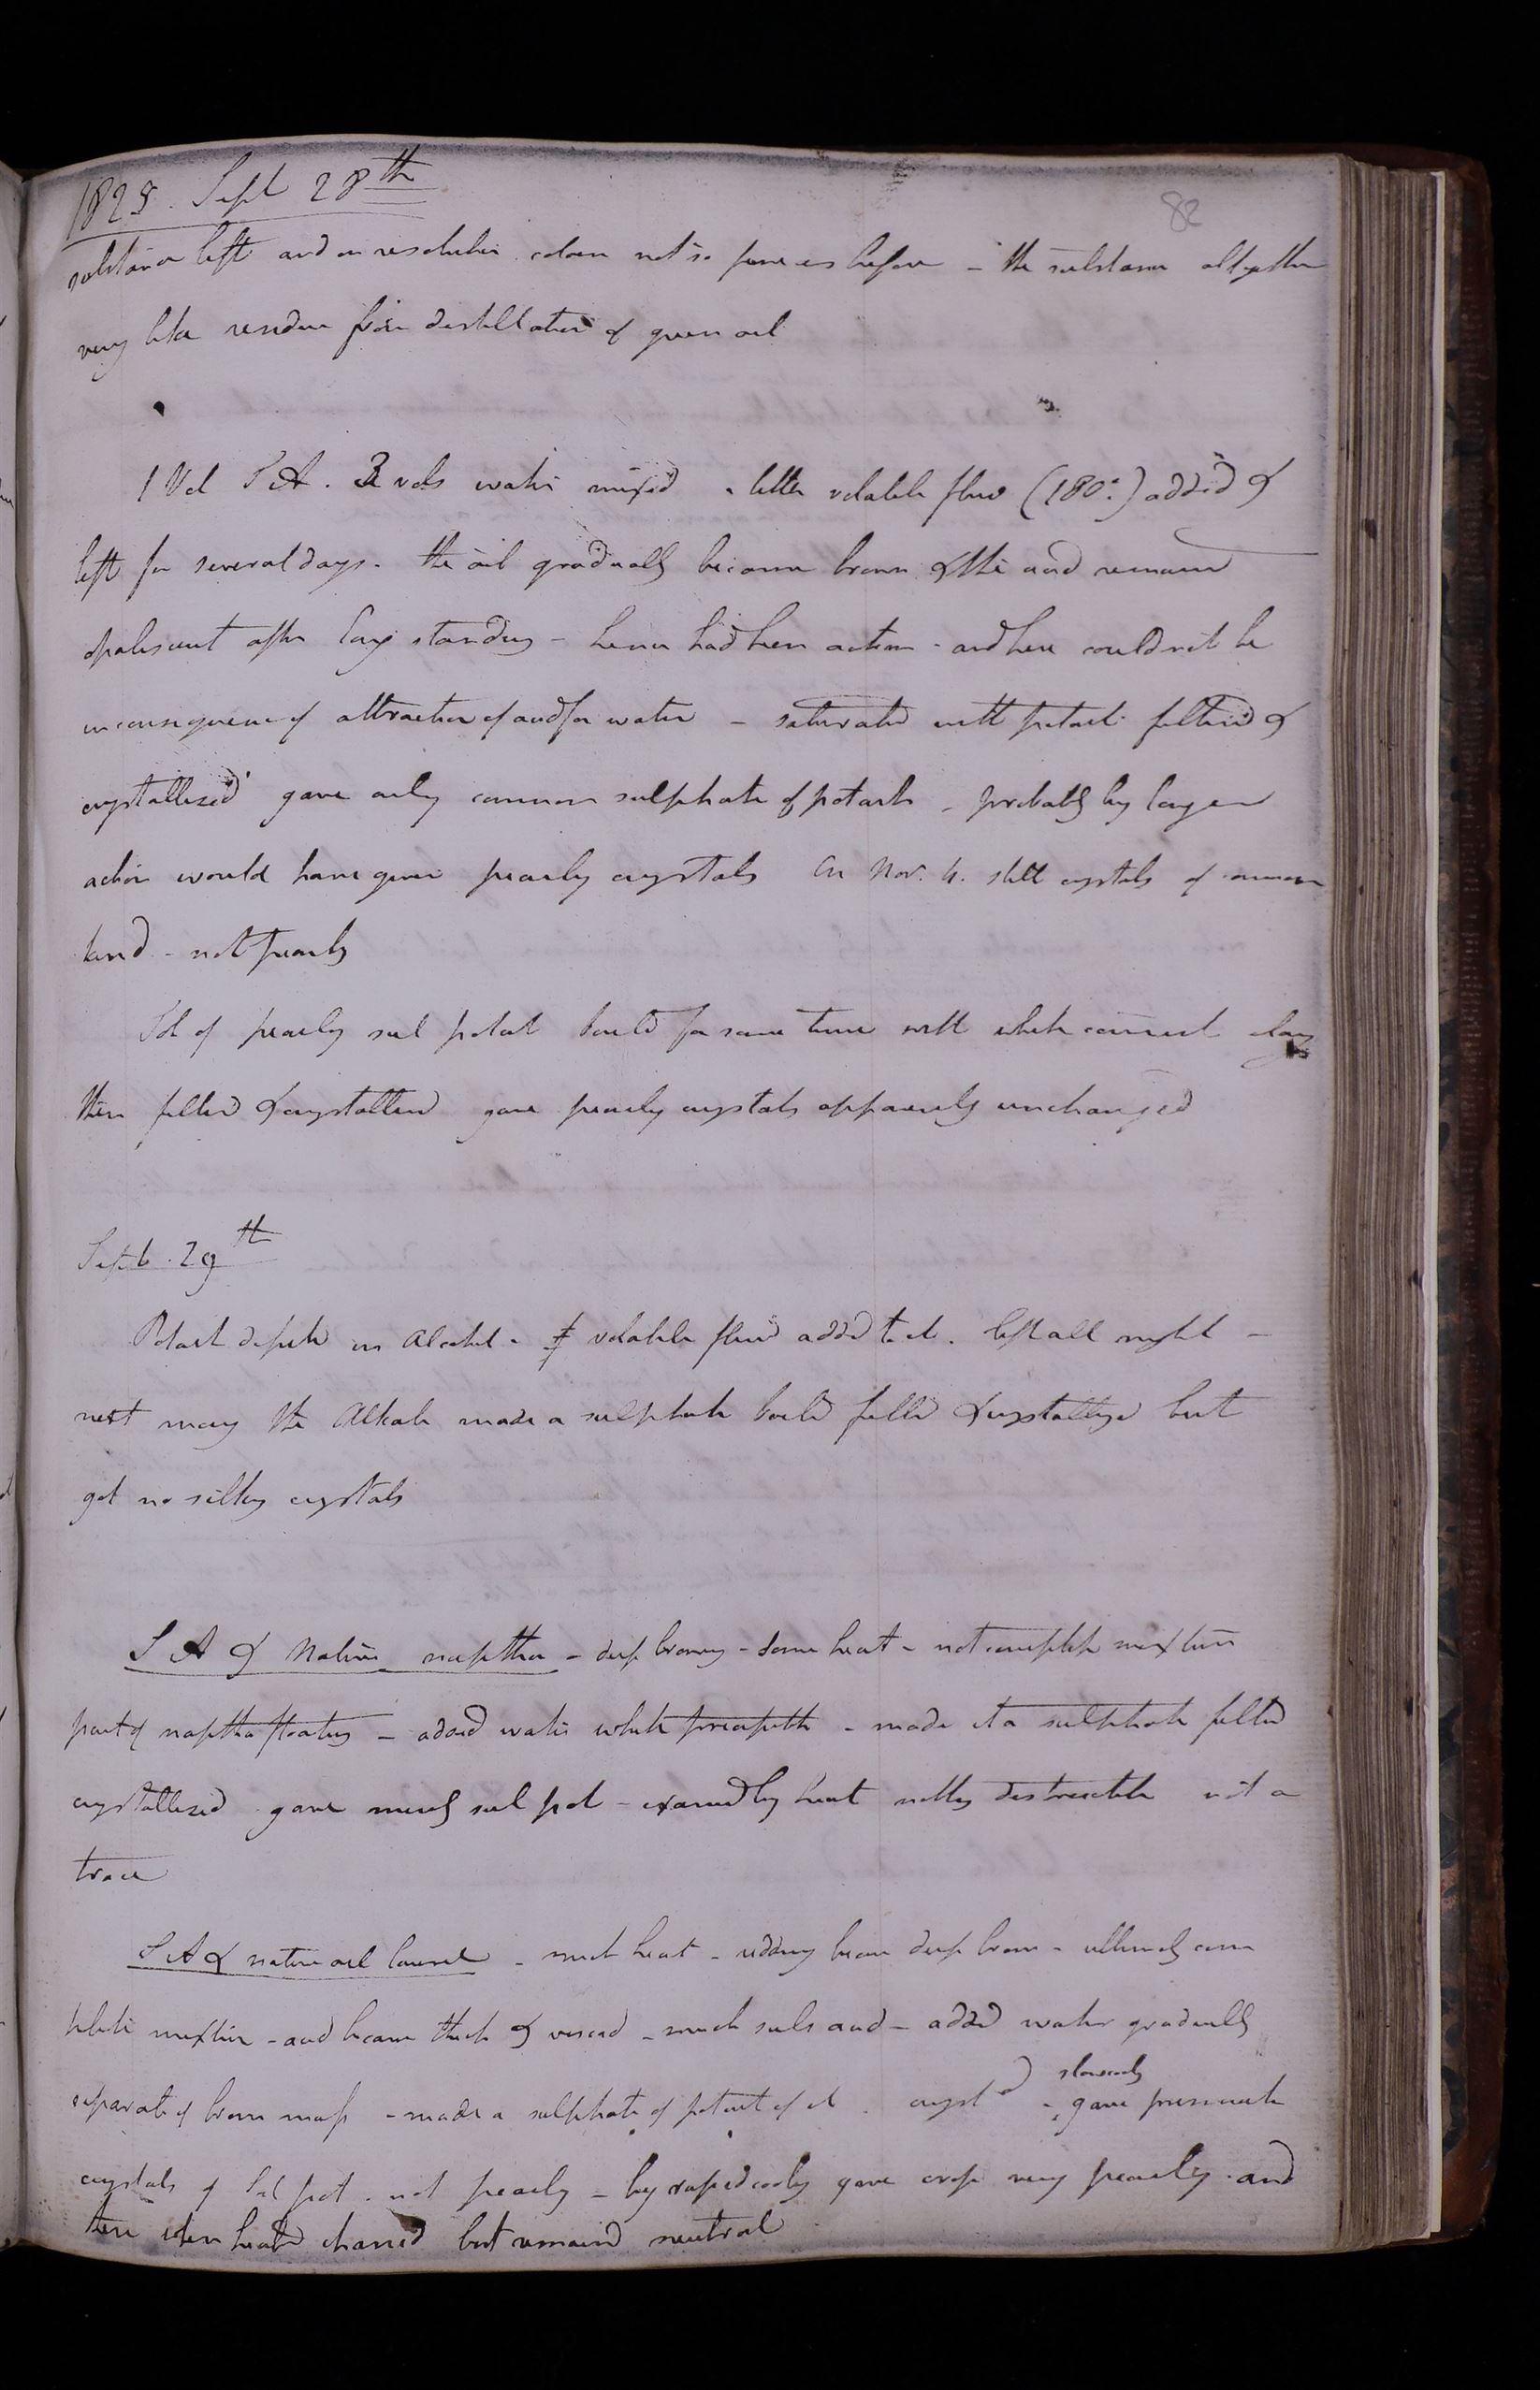 1825. Sept 28th
82
substance left and on resolution colour not so pure as before - the substance altogether
very like residue from distillation of green oil
1 Vol S A. 3 vols water mixed - little volatile fluid (180°.) added &
left for several days. the oil gradually became brown & the acid remained
opalescent after long standing - hence had been action - and here could not be
in consequence of attraction of acid for water - saturated with potash filtered &
crystallized gave only common sulphate of potash - probably by longer
action would have given pearly crystals On Nov. 4. still crystals of common
kind - not pearly
Sol of pearly sul potash boiled for some time with white clay
then filterd & crystallized gave pearly crystals apparently unchanged
Sept. 29th
Potash in Alcohol - volatile fluid added to it. left all night -
next morng the Alkali made a sulphate boild filtd & crystallized but
got no silky crystals
S A & Native naptha - deep browng - some heat - not complete mixture
part of naptha floating - added water white precipitate - made it a sulphate filtd
crystallized gave merely sul pot - examd by heat nothing destructible not a
trace
S A & native oil laurel - much heat - reddng became deep brown - ultimately com
plete mixture - and became thick & viscid - much sul acid - added water gradually
separate of brown mass - made a sulphate of potash of it. crystd
slowly
- gave prismatic
crystals of Sul pot. not pearly - by rapid cooling gave crop very pearly - and
these when heated charred but remaind neutral